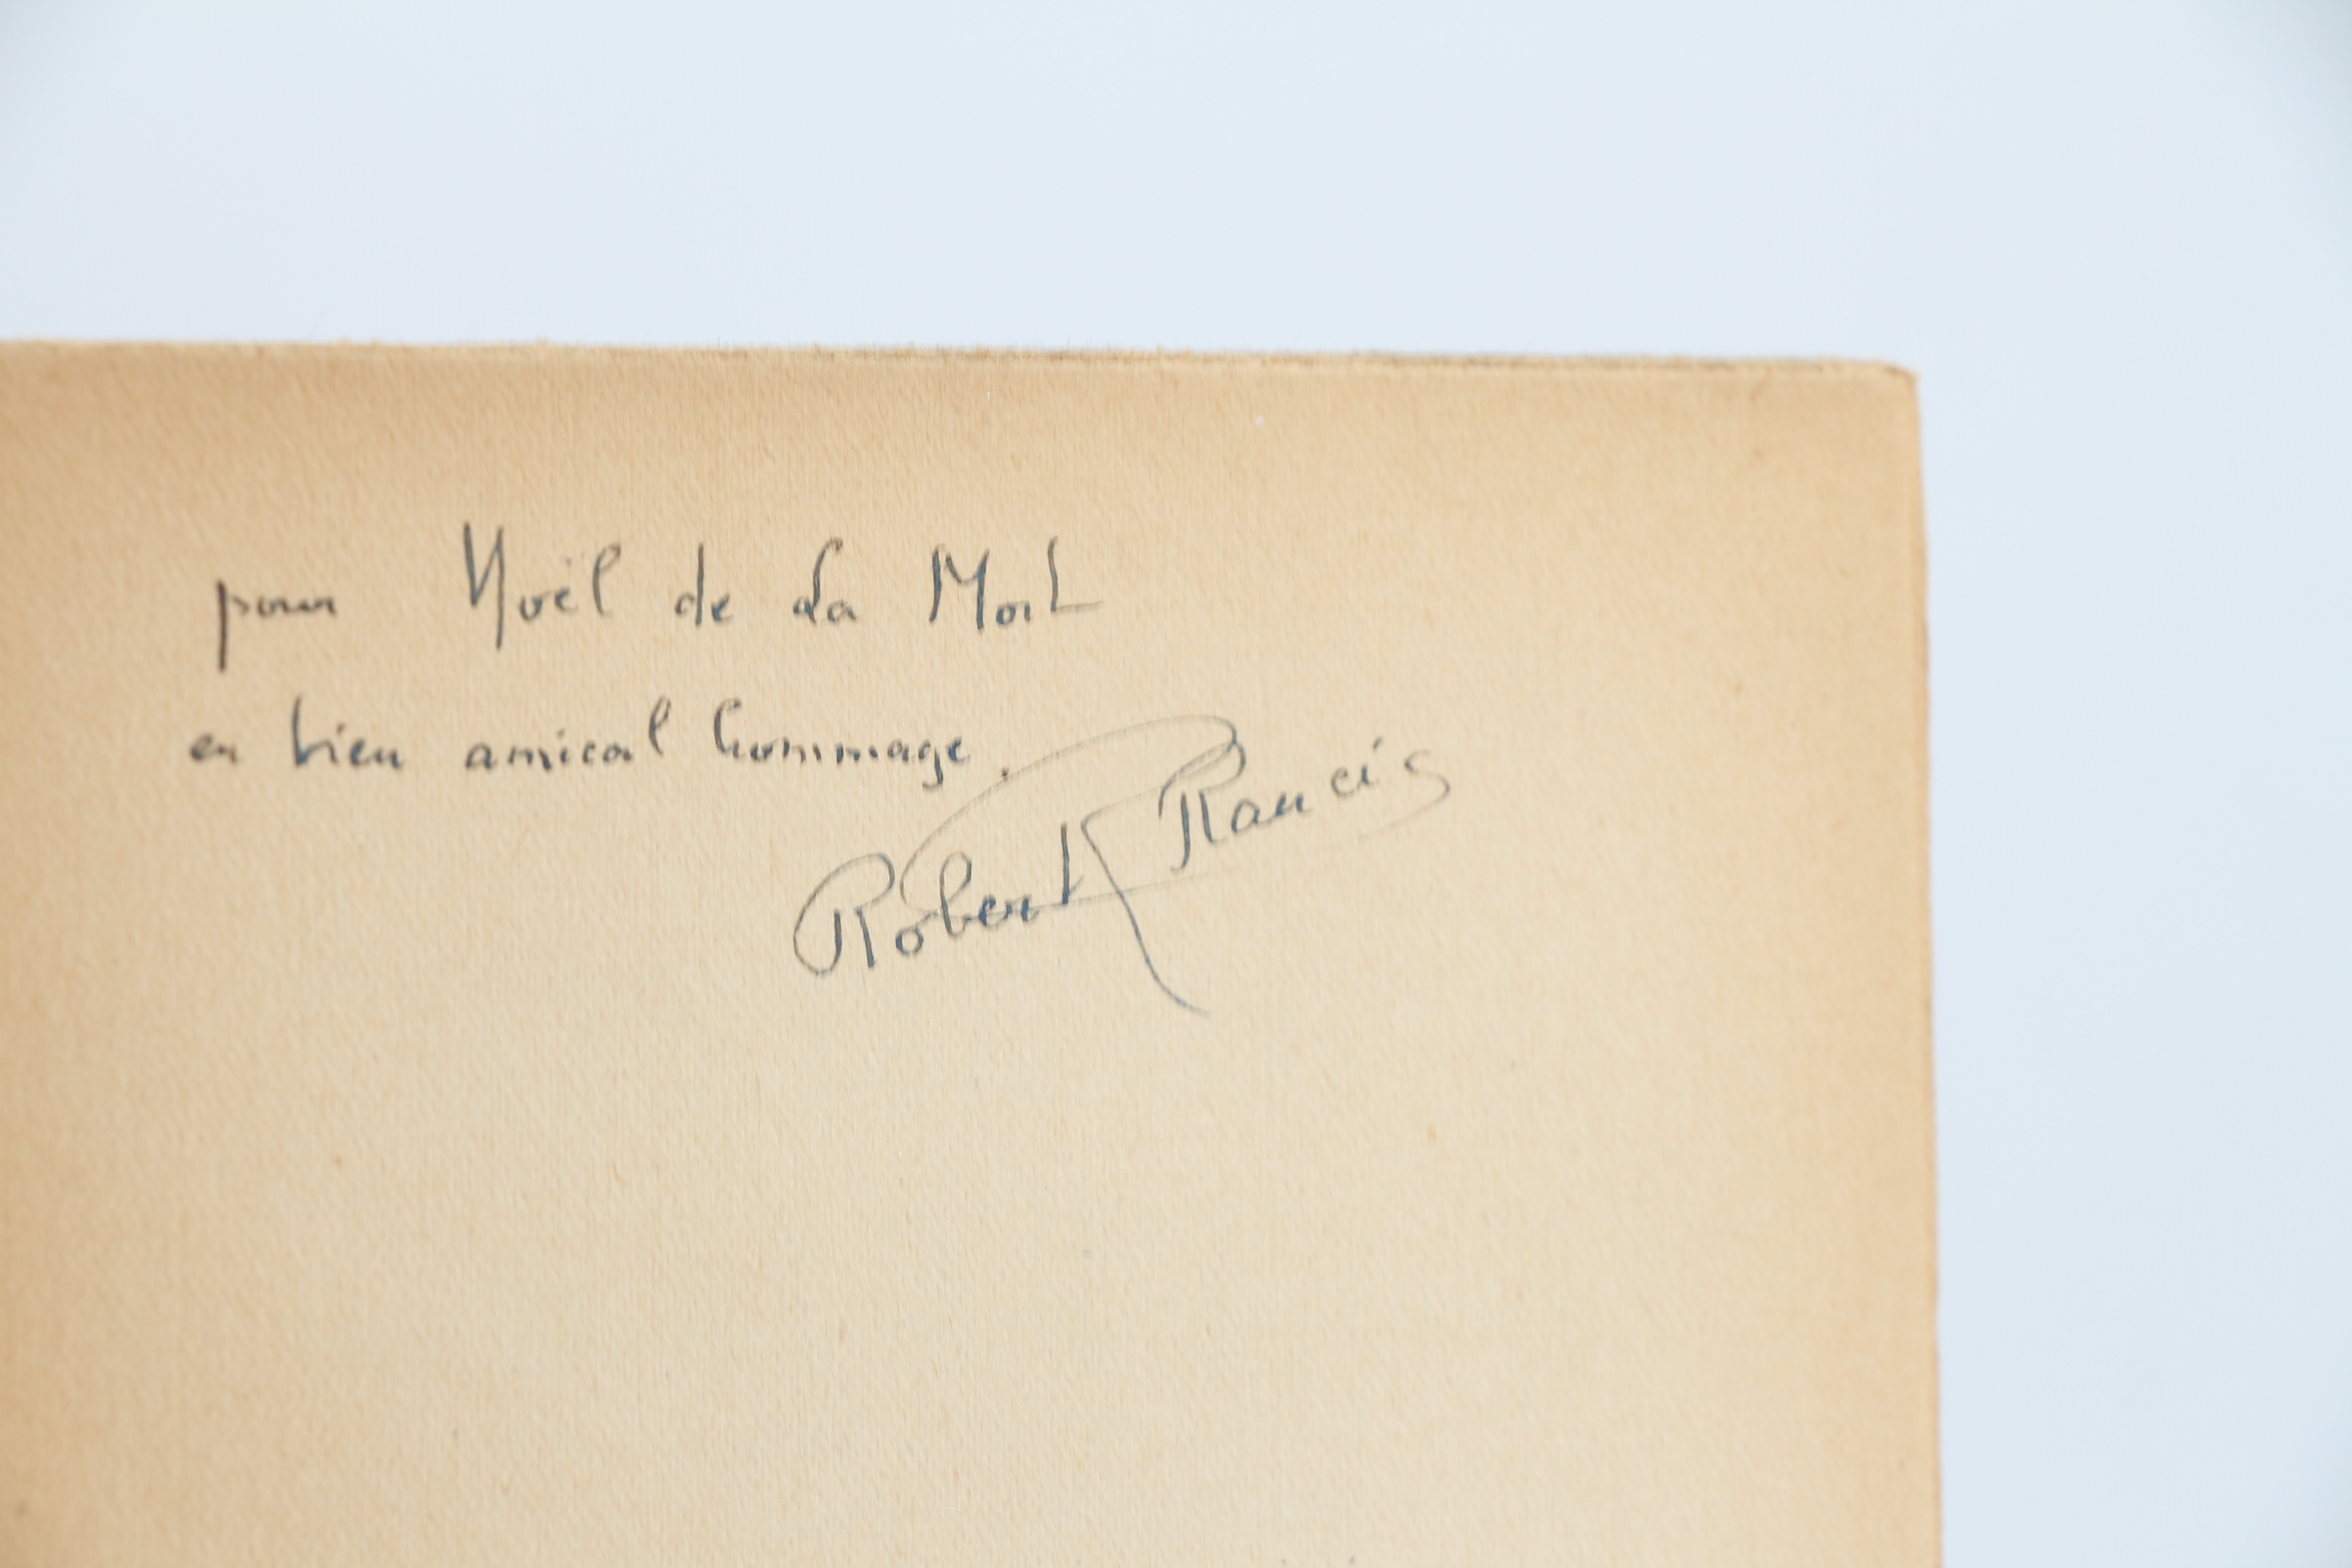 pour Noël de La Mort
en bien amical hommage.
Robert Francis